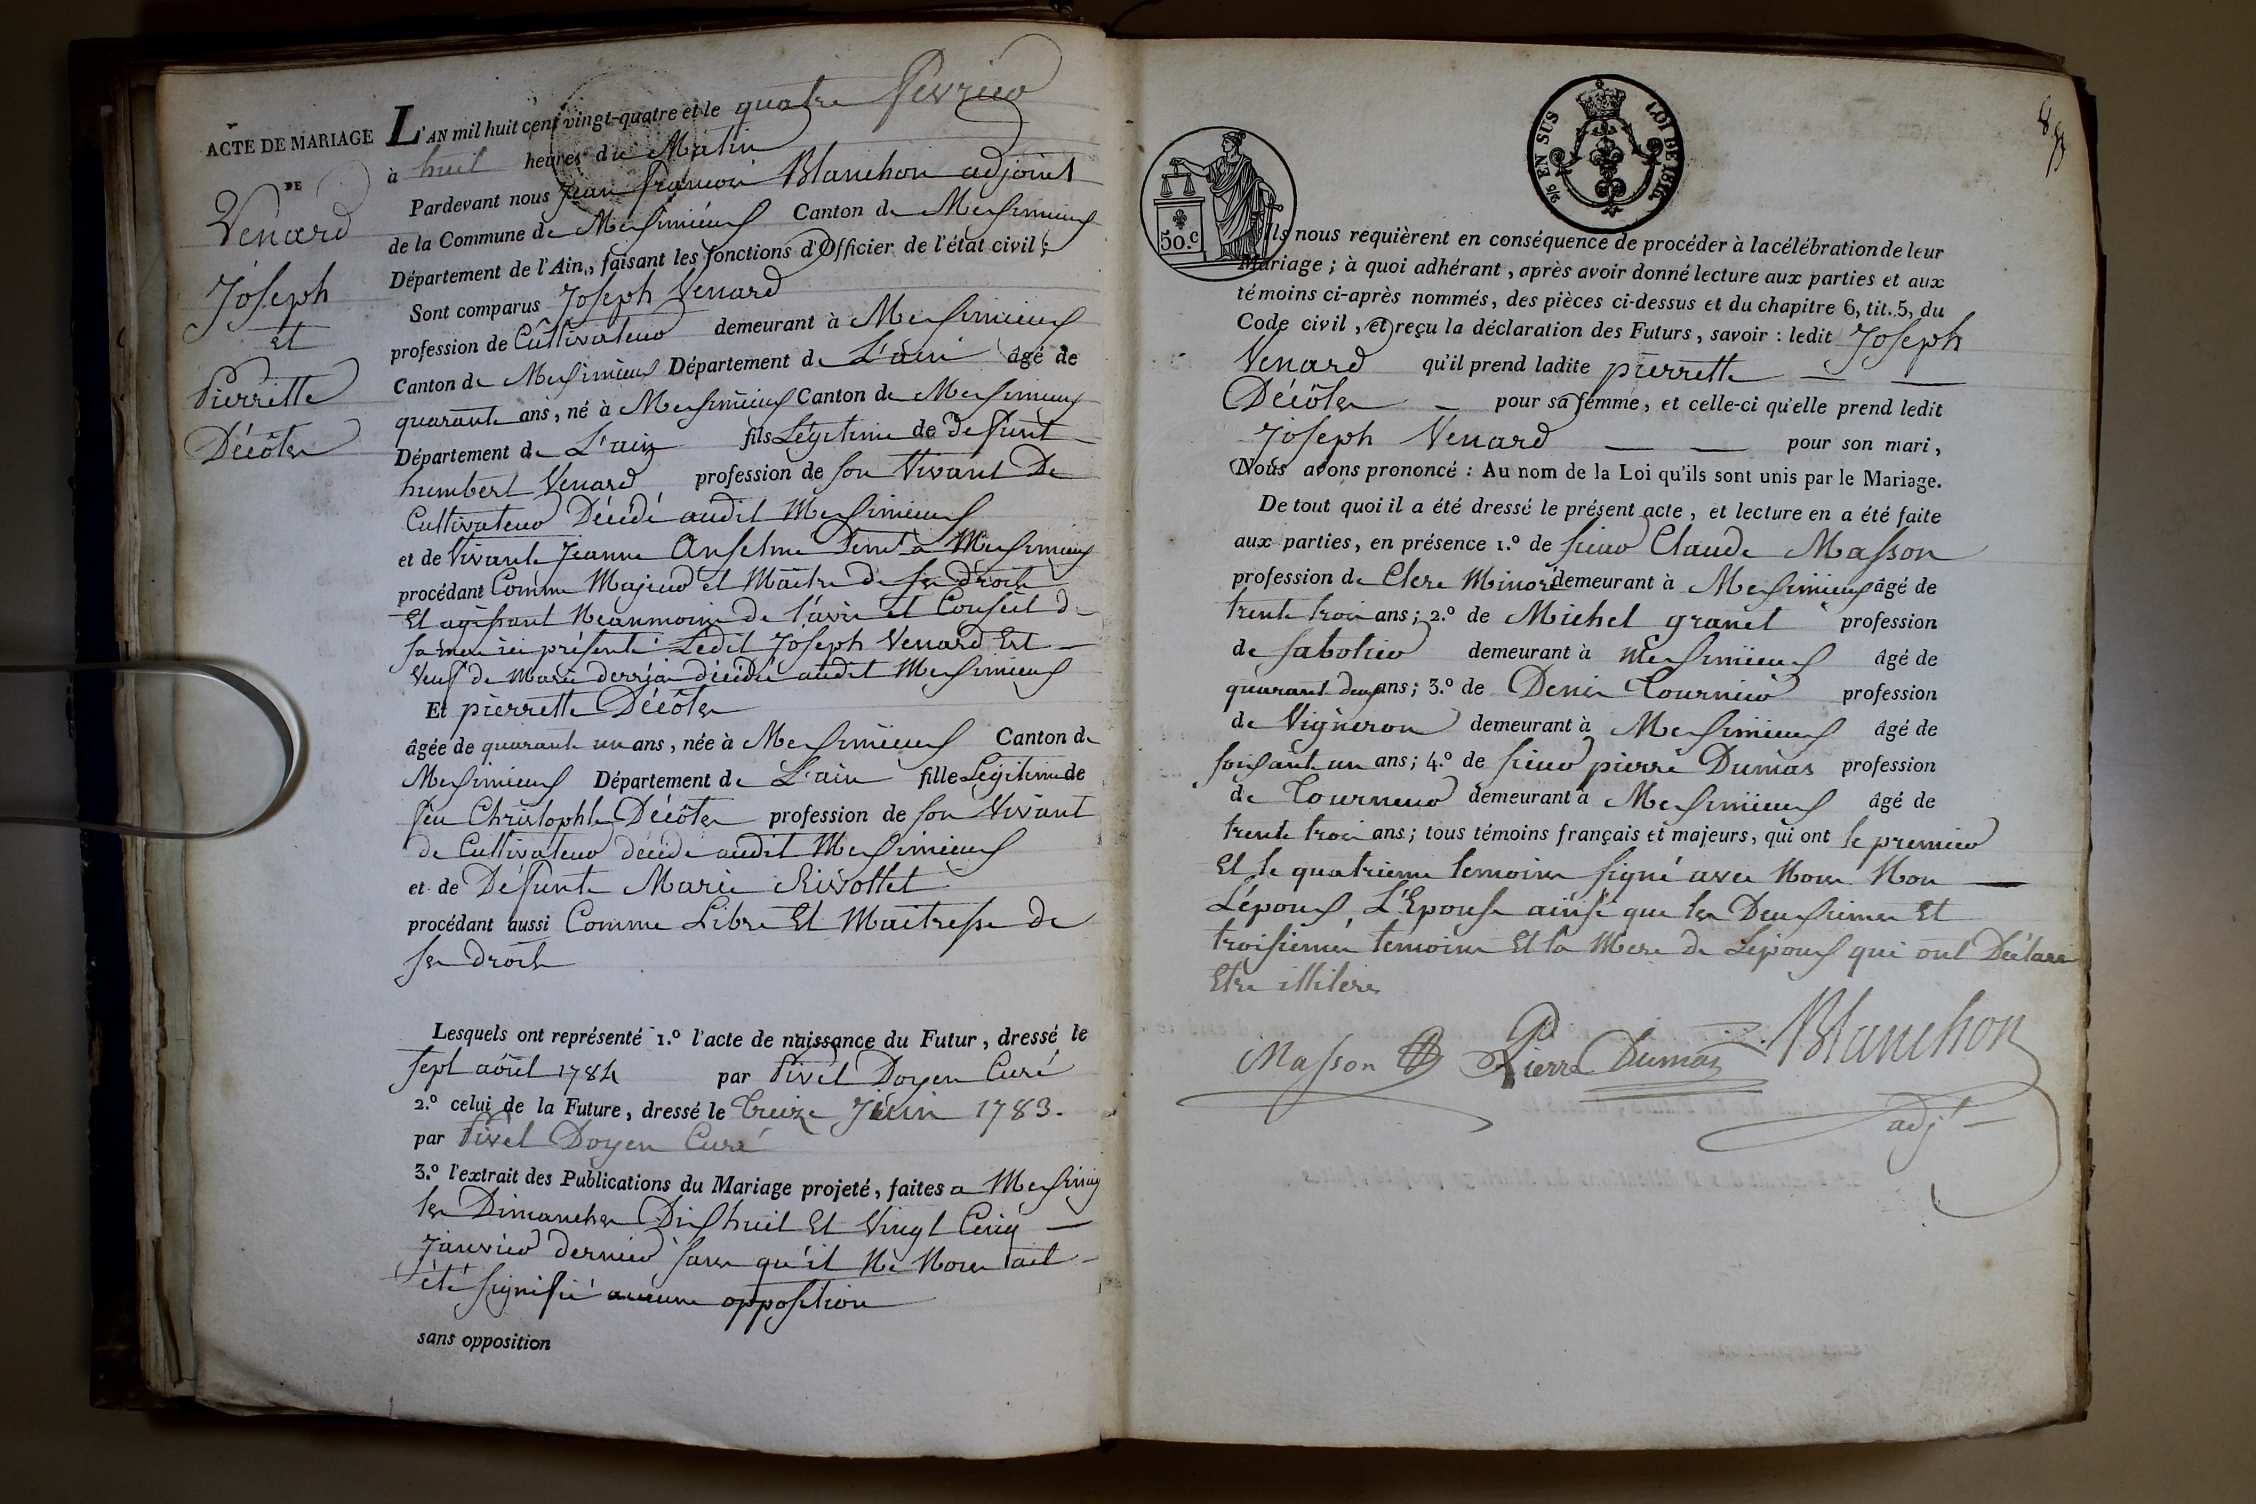 ACTE DE MARIAGE
DE
Venard
Joseph
et
Pierrette
Décôtes
L'AN mil huit cent vingt-quatre et le quatre fevrier
à huit heures du Matin
Pardevant nous Jean françois Blanchon adjoint
de la Commune de Meximieux Canton de Meximieux
Département de l'Ain, faisant les fonctions d'Officier de l'état civil;
Sont comparus Joseph Venard
profession de Cultivateur demeurant à Meximieux
Canton de Meximieux Département de L'ain âgé de
quarante ans, né à Meximieux Canton de Meximieux
Département de L'ain fils Légitime de defunt
humbert Venard profession de son Vivant De
Cultivateur Décédé audit Meximieux
et de Vivante Jeanne Anselme Demt a Meximieux
procédant Comme Majeur et Maître de ses droits
Et agissant Neanmoins de l'avis et Conseil de
sa mere ici présente. Ledit Joseph Venard Est
Veuf de Marie derriaz décédée audit Meximieux
Et pierrette Décôtes
âgée de quarante un ans, née à Meximieux Canton de
Meximieux Département de L'ain fille Légitime de
feu Christophle Décôtes profession de son Vivant
de Cultivateur décédé audit Meximieux
et de Défunte Marie Rivottet
procédant aussi Comme Libre Et Maitresse de
ses droits
Lesquels ont représenté 1.º l'acte de naissance du Futur, dressé le
sept août 1784 par Pivet Doyen Curé
2.º celui de la Future, dressé le Treize Juin 1783.
par Pivet Doyen Curé
3.º l'extrait des Publications du Mariage projeté, faites a Meximieux
les Dimanches Dixhuit Et Vingt Cinq
Janvier dernier sans qu'il Ne Nous ait
été signifié aucune opposition
sans opposition
83
2/5 EN SUS LOI DE 1816.
50.c
Ils nous requièrent en conséquence de procéder à la célébration de leur
Mariage; à quoi adhérant, après avoir donné lecture aux parties et aux
témoins ci-après nommés, des pièces ci-dessus et du chapitre 6, tit. 5, du
Code civil, et reçu la déclaration des Futurs, savoir: ledit Joseph
Venard qu'il prend ladite pierrette
Décôtes pour sa femme, et celle-ci qu'elle prend ledit
Joseph Venard pour son mari,
Nous avons prononcé: Au nom de la Loi qu'ils sont unis par le Mariage.
De tout quoi il a été dressé le présent acte, et lecture en a été faite
aux parties, en présence 1.º de sieur Claude Masson
profession de Clerc Minoré demeurant à Meximieux âgé de
trente trois ans; 2.º de Michel granet profession
de sabotier demeurant à Meximieux âgé de
quarant deux ans; 3.º de Denis Tournier profession
de Vigneron demeurant à Meximieux âgé de
soixant un ans; 4.º de sieur pierre Dumas profession
de Tourneur demeurant à Meximieux âgé de
trente trois ans; tous témoins français et majeurs, qui ont le premier
Et le quatrieme temoins signé avec Nous Non
L'époux, L'Epouse ainsi que les Deuxiemes Et
troisiemes temoins Et la Mere de Lepoux qui ont Déclaré
Etre illiteres
Masson Pierre Dumas Blanchon
adjt